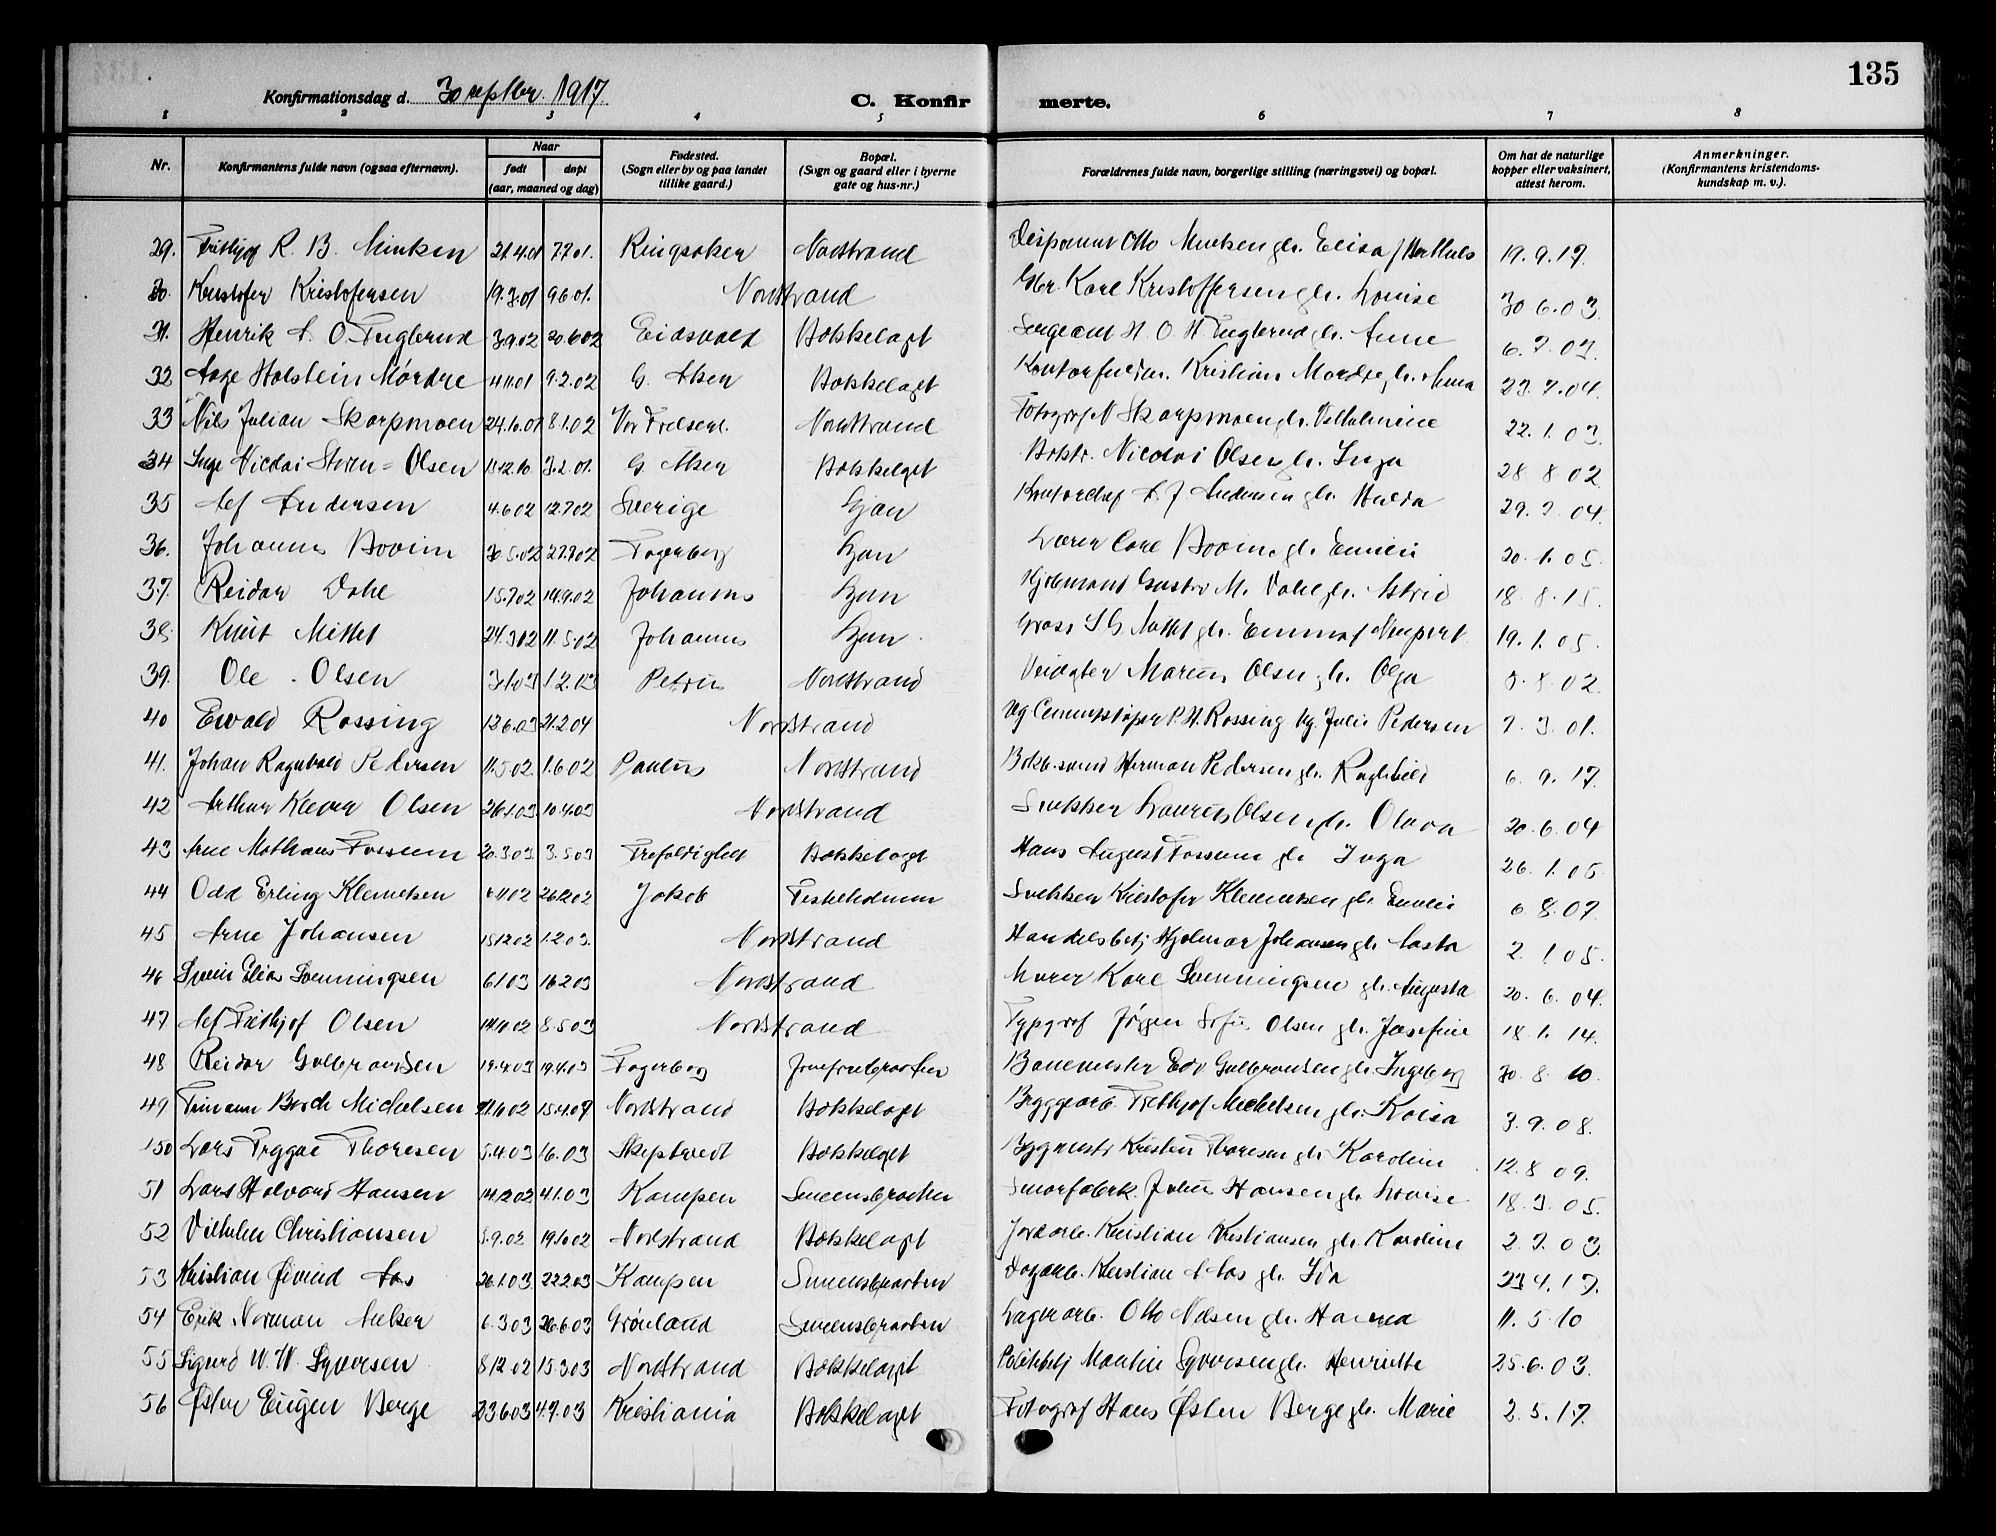 135
Konfirmationsdag d. 30 septbr. 1917. C. Konfirmerte.
1 2 3 4 5 6 7 8
Nr. Konfirmantens fulde navn (ogsaa efternavn). Naar født døpt (aar, maaned og dag) Fødested. (Sogn eller by og paa landet tillike gaard.) Bopæl. (Sogn og gaard eller i byerne gate og hus-nr.) Forældrenes fulde navn, borgerlige stilling (næringsvei) og bopæl. Om hat de naturlige kopper eller vaksinert, attest herom. Anmerkninger. (Konfirmantens kristendoms-kundskap m. v.).
29. Frithjof R. B. Minken 21.4.01 7.7.01. Ringsaker Nordstrand Disponent Otto Minken gh. Elisa 19.9.17.
30. Kristofer Kristofersen 19.3.01 9.6.01. Nordstrand Karl Kristoffersen gh. Lovise 30 6.03.
31. Henrik A. O. Fuglerud 3.9.02 20.6.02 Eidsvold Bækkelaget Sergeant H. O. H. Fuglerud gh. Anne 6.7.03.
32 Aage Holstein Mørdre 4.11.01 9.2.02 G. Aker Bækkelaget Kontorfuldm. Kristian Mørdre gh. Anna 23.7.04.
33 Nils Julian Skarpmoen 24.10.01 8.1.02 Vor Frelsers. Nordstrand Fotograf N Skarpmoen gh. Vilhelmine 22.1.03.
34 Inge Nicolai Steen = Olsen 3.2.01. G. Aker Bækkelaget Nicolai Olsen gh. Inga 28 8 02.
35 Alf Andersen 4.6.02 12.7.02 Sverige Ljan Kontorchef A. J. Andersen gh. Hulda 29.7.04.
36. Johannes Booim 30.5.02 27.7.02 Fagerborg Ljan Lærer Carl Booim gh. Emilie 20.1.05.
37. Reidar Dahl 15.7.02 14.9.02 Johannes Ljan Gustav M. Dahl gh. Astrid 18.8.15.
38. Knut Mittet 24.3.02 11.5.02 Johannes Ljan Gross. I G Mittet gh. Emma Neupert 19.1.05.
39. Ole Olsen 3.1.03 1.2.03 Petrus Nordstrand Marius Olsen gh. Olga 8.02.
40 Ewald Rossing 12.6.03 21.2.04 Nordstrand Ug. Cementstøper P. H. Rossing Ug. Julie Pedersen 7.3.01.
41. Johan Ragnvald Pedersen 11.5.02. 1.6.02 Paulus Nordstrand Herman Pedersen gh. Raghild 6.9.17.
42 Arthur Kleven Olsen 26.1.03. 10.4.03 Nordstrand Snekker Laurits Olsen gh. Olava 20.6.04
43 Arne Mathæus Fossum 20.3.03 3.5.03 Trefoldighet Bækkelaget Hans August Fossum gh Inga 26.1.05.
44 Odd Erling Klemetsen 6.11.02 26.12.02 Jakob Fiskeholmen Snekker Kristofer Klemetsen gh. Emilie 6.8.07.
45 Arne Johansen 15.12.02 1.2.03. Nordstrand Handelsbetj Hjalmar Johansen gh. Aasta 2.1.05.
46 Svein Elias Svenningsen 6.1.03 16.2.03 Nordstrand Murer Karl Svenningsen gh. Augusta 20.6.04.
47 Alf Frithjof Olsen 14.11.02 8.5.03 Nordstrand Typograf Jørgen Sofus Olsen gh. Josefine 18.1.14.
48 Reidar Gulbrandsen 19.4.03 19.4.03 Fagerborg Jomfrubraaten Banemester Edv Gulbrandsen gh. Ingeborg 30.8.10.
49 Finn Borch Michelsen 15.4.07 Nordstrand Bækkelaget Byggearb. Frithjof Michelsen gh. Kaisa 3.9.08.
150 Lars Trygve Thoresen 5.4.03 1.6.03 Skiptvedt Bækkelaget Bygmestr Kristen Thoresen gh Karoline 12.8 09.
51 Lars Halvard Hansen 14.12.02 4.1.03 Kampen Simensbraaten Smørfabrk. Julius Hansen gh. Lovise 18.3.05.
52 Vilhelm Christiansen 5.9.02 19.10.02 Nordstrand Bækkelaget Jordarb. Kristian Kristiansen gh. Karoline 2.7.03.
53 Kristian Øivind Aas 26.1.03 22.2.03 Kampen Simensbraaten Dagarb. Kristian A Aas gh. Ida 23 4.17.
54 Erik Norman Nilsen 6.3.03 26.6.03 Grønland Simensbraaten Lagerarb. Otto Nilsen gh. Hanna 11.5.10
55 Sigurd W. W. Syversen 8.12.02 15.3.03 Nordstrand Bækkelaget Politibtj Martin Syversen gh. Henriette 25.6.03.
56 Østen Eugen Berge 23.6.03 4.7.03 Kristiania Bækkelaget Fotograf Hans Østen Berge gh. Marie 2.5.17.